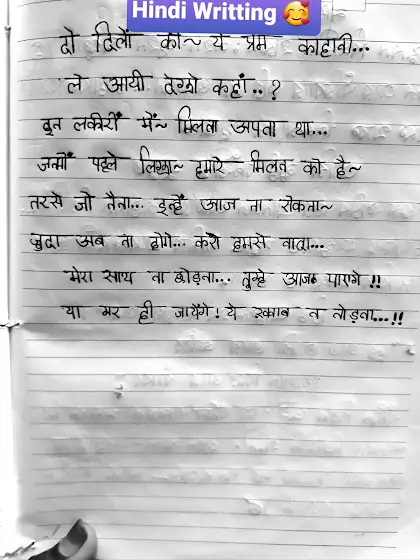 Hindi Writting 🥰
दो दिलों की~ ये प्रेम कहानी...
ले आयी देखो कहाँ..?
इन लकीरों में~ मिलना अपना था...
जन्मों पहले लिखा~ हमारे मिलन को है~
तरसे जो नैना... इन्हें आज ना रोकना~
जुदा अब ना होंगे... करो हमसे वादा...
मेरा साथ ना छोड़ना... तुम्हे आज पाएगे !!
या मर ही जायेंगे! ये ख़्वाब न तोड़ना...!!